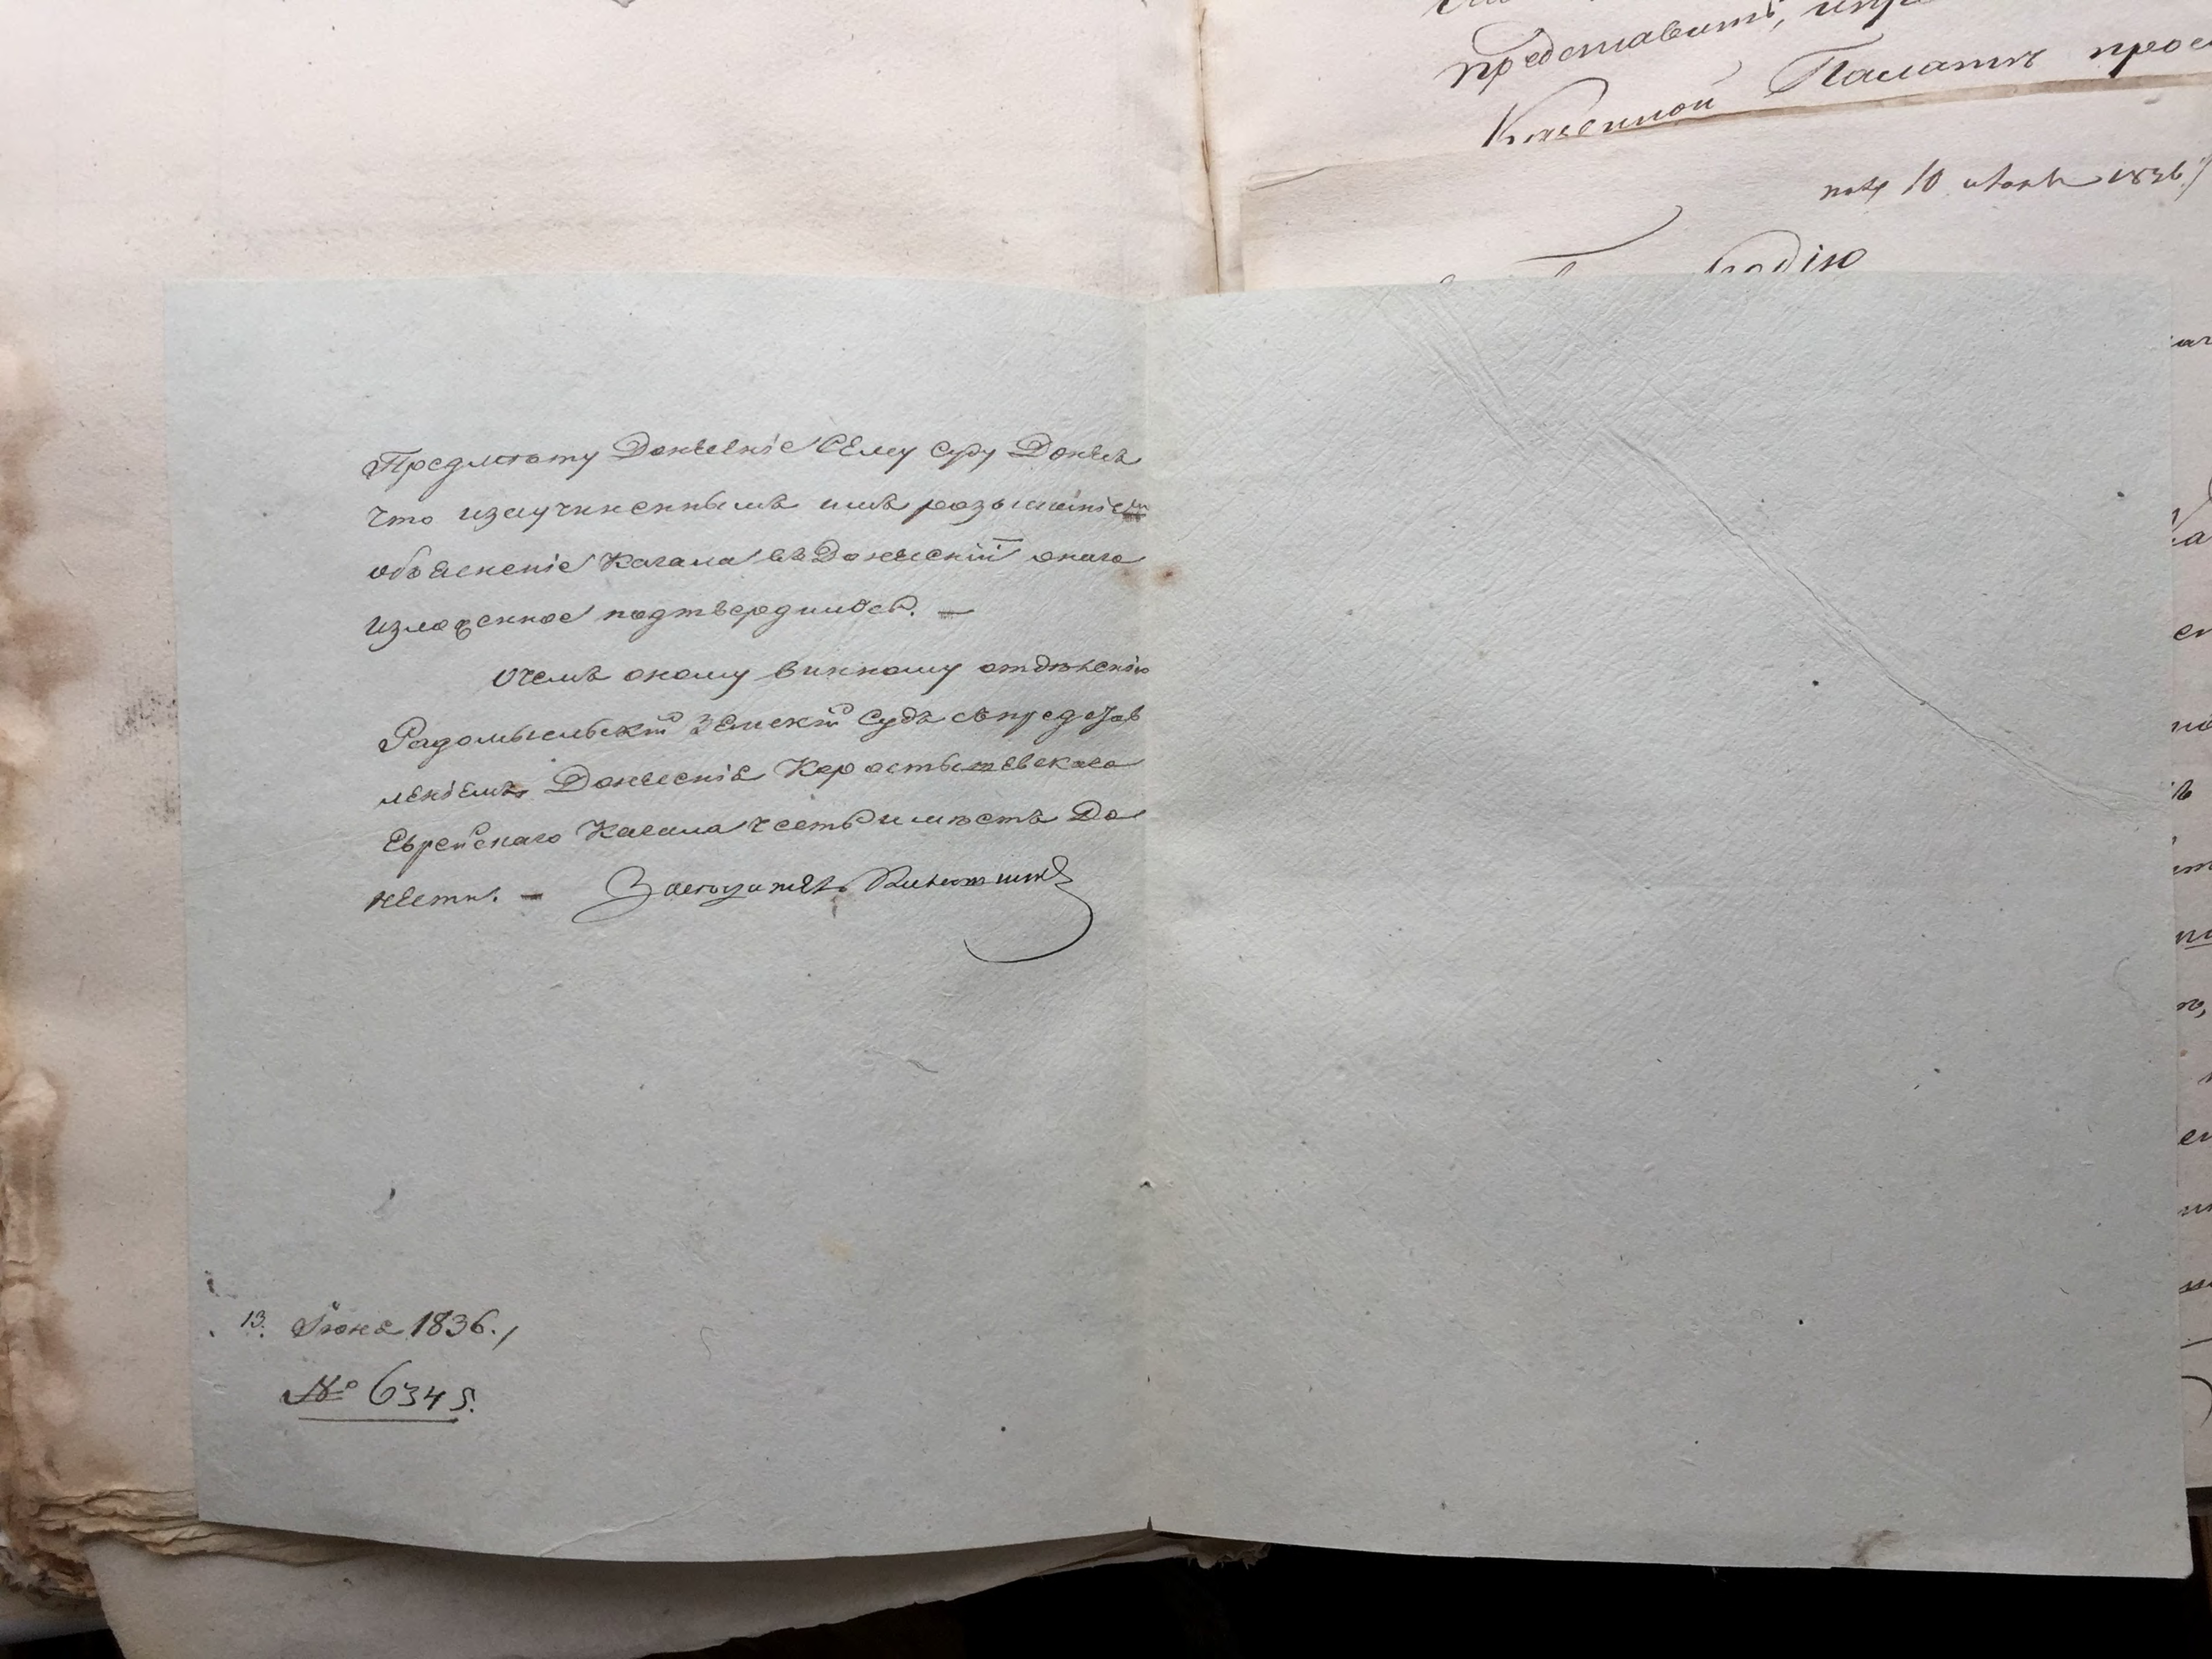 представить,
Казенной Палаты
10 1836
Предмѣту Донесеніе сему суду Донесъ
что изъучиненнымъ имъ розысканіемъ
объясненіе Кагала въ Донесеніи онаго
изложенное подтвердилось. —
О чемъ оному винному отдѣленію
Радомысльскій Земскій Судъ съ представ
леніемъ Донесенія Коростышевскаго
Еврейскаго Кагала честь имѣетъ До
нести. — Засѣдатель
13. Іюня 1836.
№ 6345.